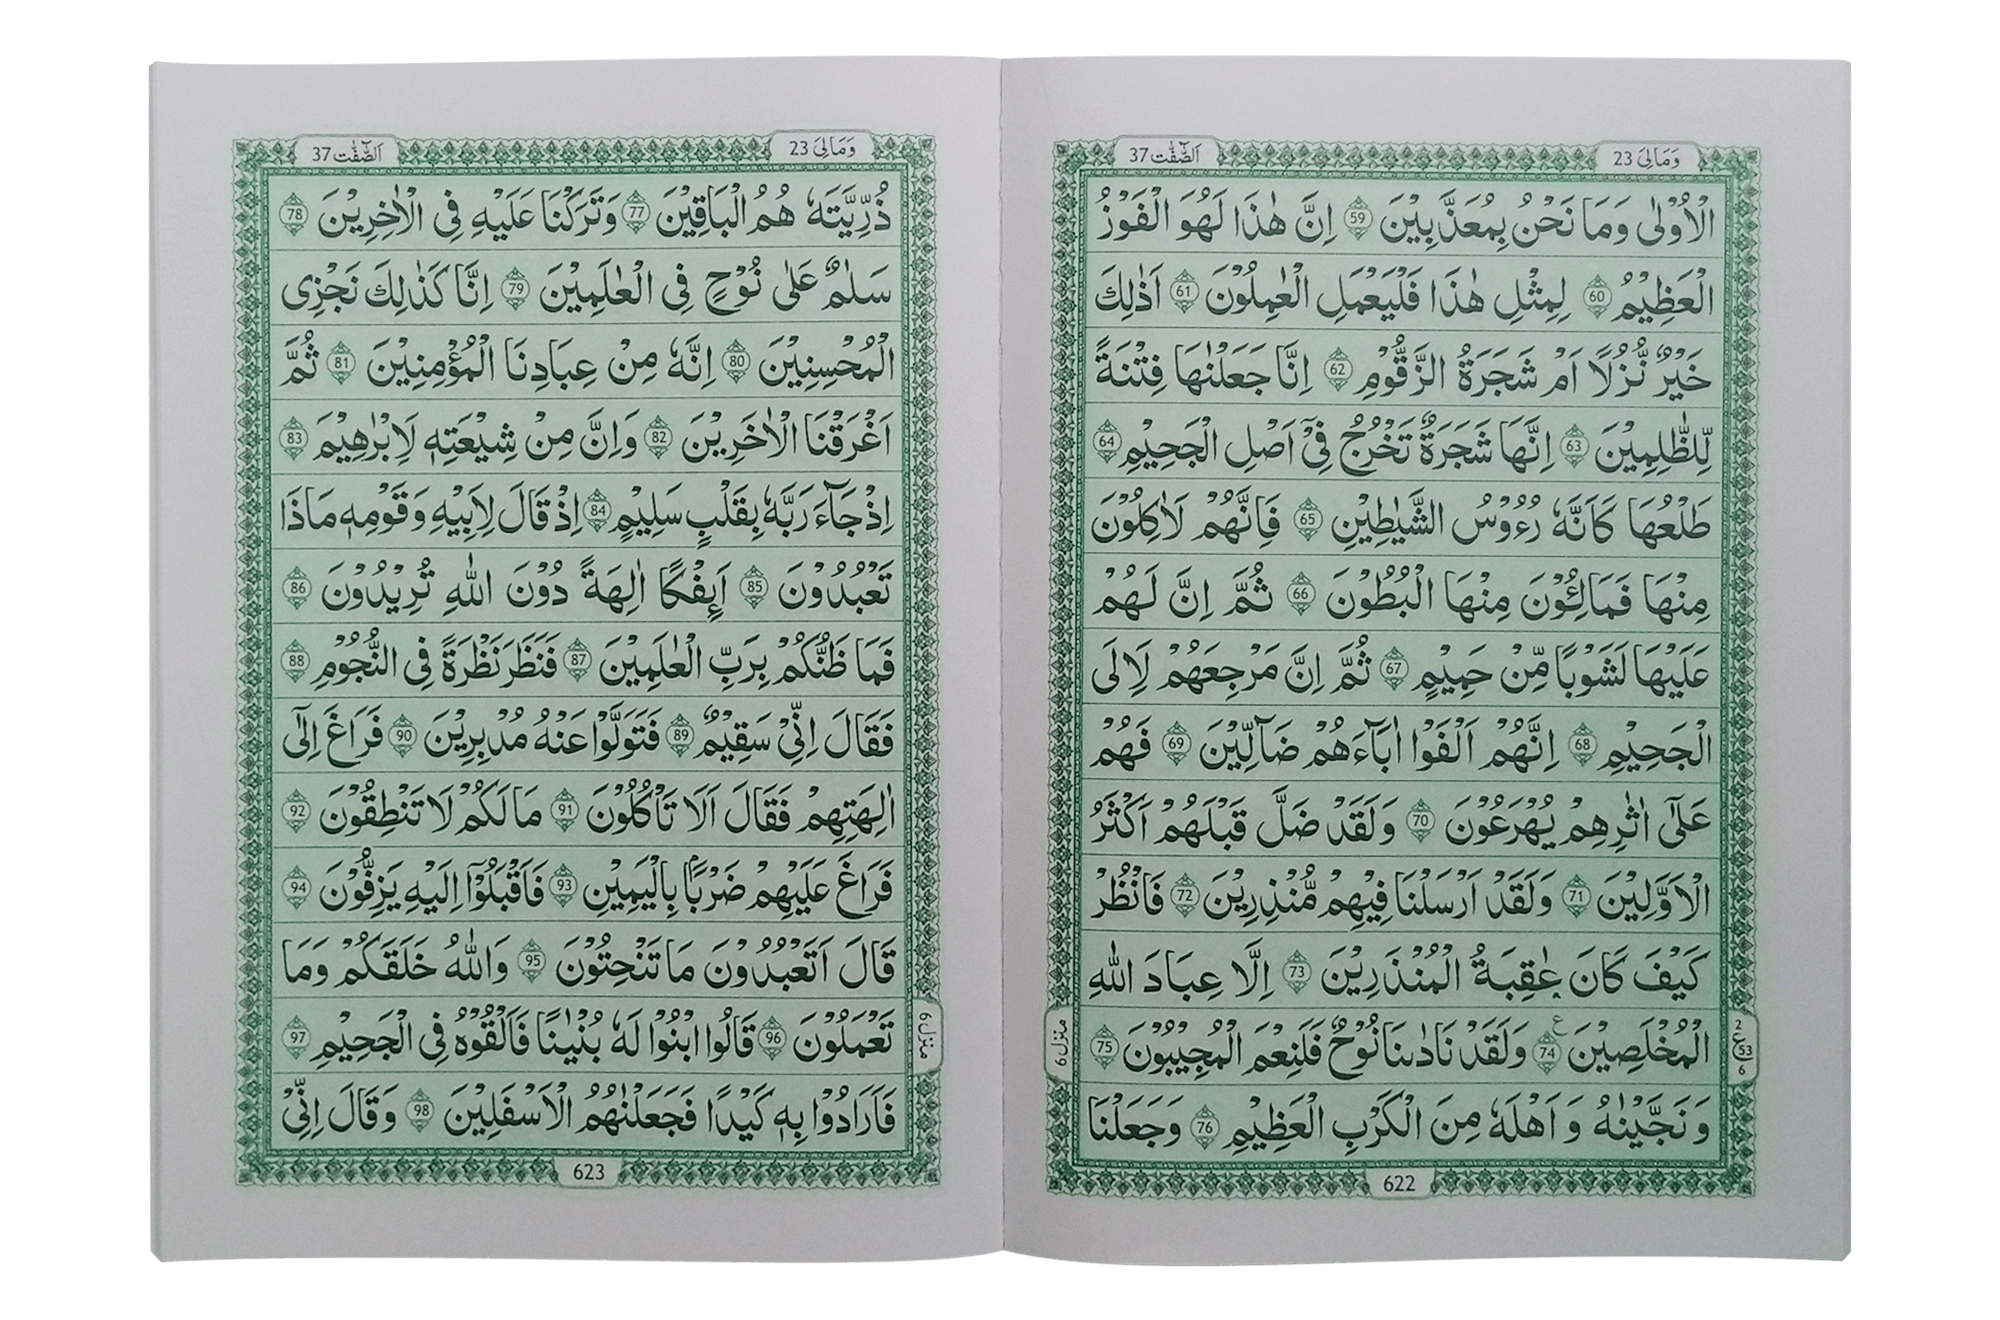 وَمَالِیَ 23
اَلصّٰٓفّٰت 37
الْاُوْلٰى وَمَا نَحْنُ بِمُعَذَّبِيْنَ 59 اِنَّ هٰذَا لَهُوَ الْفَوْزُ
الْعَظِيْمُ 60 لِمِثْلِ هٰذَا فَلْيَعْمَلِ الْعٰمِلُوْنَ 61 اَذٰلِكَ
خَيْرٌ نُّزُلًا اَمْ شَجَرَةُ الزَّقُّوْمِ 62 اِنَّا جَعَلْنٰهَا فِتْنَةً
لِّلظّٰلِمِيْنَ 63 اِنَّهَا شَجَرَةٌ تَخْرُجُ فِيْۤ اَصْلِ الْجَحِيْمِ 64
طَلْعُهَا كَاَنَّهٗ رُءُوْسُ الشَّيٰطِيْنِ 65 فَاِنَّهُمْ لَاٰكِلُوْنَ
مِنْهَا فَمَالِـُٔوْنَ مِنْهَا الْبُطُوْنَ 66 ثُمَّ اِنَّ لَهُمْ
عَلَيْهَا لَشَوْبًا مِّنْ حَمِيْمٍ 67 ثُمَّ اِنَّ مَرْجِعَهُمْ لَاِلَى
الْجَحِيْمِ 68 اِنَّهُمْ اَلْفَوْا اٰبَآءَهُمْ ضَآلِّيْنَ 69 فَهُمْ
عَلٰٓى اٰثٰرِهِمْ يُهْرَعُوْنَ 70 وَلَقَدْ ضَلَّ قَبْلَهُمْ اَكْثَرُ
الْاَوَّلِيْنَ 71 وَلَقَدْ اَرْسَلْنَا فِيْهِمْ مُّنْذِرِيْنَ 72 فَانْظُرْ
كَيْفَ كَانَ عٰقِبَةُ الْمُنْذَرِيْنَ 73 اِلَّا عِبَادَ اللّٰهِ
الْمُخْلَصِيْنَ 74 ع وَلَقَدْ نَادٰىنَا نُوْحٌ فَلَنِعْمَ الْمُجِيْبُوْنَ 75
وَنَجَّيْنٰهُ وَاَهْلَهٗ مِنَ الْكَرْبِ الْعَظِيْمِ 76 وَجَعَلْنَا
2
ع 53
6
منزل 6
622
وَمَالِیَ 23
اَلصّٰٓفّٰت 37
ذُرِّيَّتَهٗ هُمُ الْبَاقِيْنَ 77 وَتَرَكْنَا عَلَيْهِ فِى الْاٰخِرِيْنَ 78
سَلٰمٌ عَلٰى نُوْحٍ فِى الْعٰلَمِيْنَ 79 اِنَّا كَذٰلِكَ نَجْزِى
الْمُحْسِنِيْنَ 80 اِنَّهٗ مِنْ عِبَادِنَا الْمُؤْمِنِيْنَ 81 ثُمَّ
اَغْرَقْنَا الْاٰخَرِيْنَ 82 وَاِنَّ مِنْ شِيْعَتِهٖ لَاِبْرٰهِيْمَ 83
اِذْ جَآءَ رَبَّهٗ بِقَلْبٍ سَلِيْمٍ 84 اِذْ قَالَ لِاَبِيْهِ وَقَوْمِهٖ مَاذَا
تَعْبُدُوْنَ 85 اَئِفْكًا اٰلِهَةً دُوْنَ اللّٰهِ تُرِيْدُوْنَ 86
فَمَا ظَنُّكُمْ بِرَبِّ الْعٰلَمِيْنَ 87 فَنَظَرَ نَظْرَةً فِى النُّجُوْمِ 88
فَقَالَ اِنِّيْ سَقِيْمٌ 89 فَتَوَلَّوْا عَنْهُ مُدْبِرِيْنَ 90 فَرَاغَ اِلٰٓى
اٰلِهَتِهِمْ فَقَالَ اَلَا تَاْكُلُوْنَ 91 مَا لَكُمْ لَا تَنْطِقُوْنَ 92
فَرَاغَ عَلَيْهِمْ ضَرْبًاۢ بِالْيَمِيْنِ 93 فَاَقْبَلُوْۤا اِلَيْهِ يَزِفُّوْنَ 94
قَالَ اَتَعْبُدُوْنَ مَا تَنْحِتُوْنَ 95 وَاللّٰهُ خَلَقَكُمْ وَمَا
تَعْمَلُوْنَ 96 قَالُوا ابْنُوْا لَهٗ بُنْيٰنًا فَاَلْقُوْهُ فِى الْجَحِيْمِ 97
فَاَرَادُوْا بِهٖ كَيْدًا فَجَعَلْنٰهُمُ الْاَسْفَلِيْنَ 98 وَقَالَ اِنِّيْ
منزل 6
623